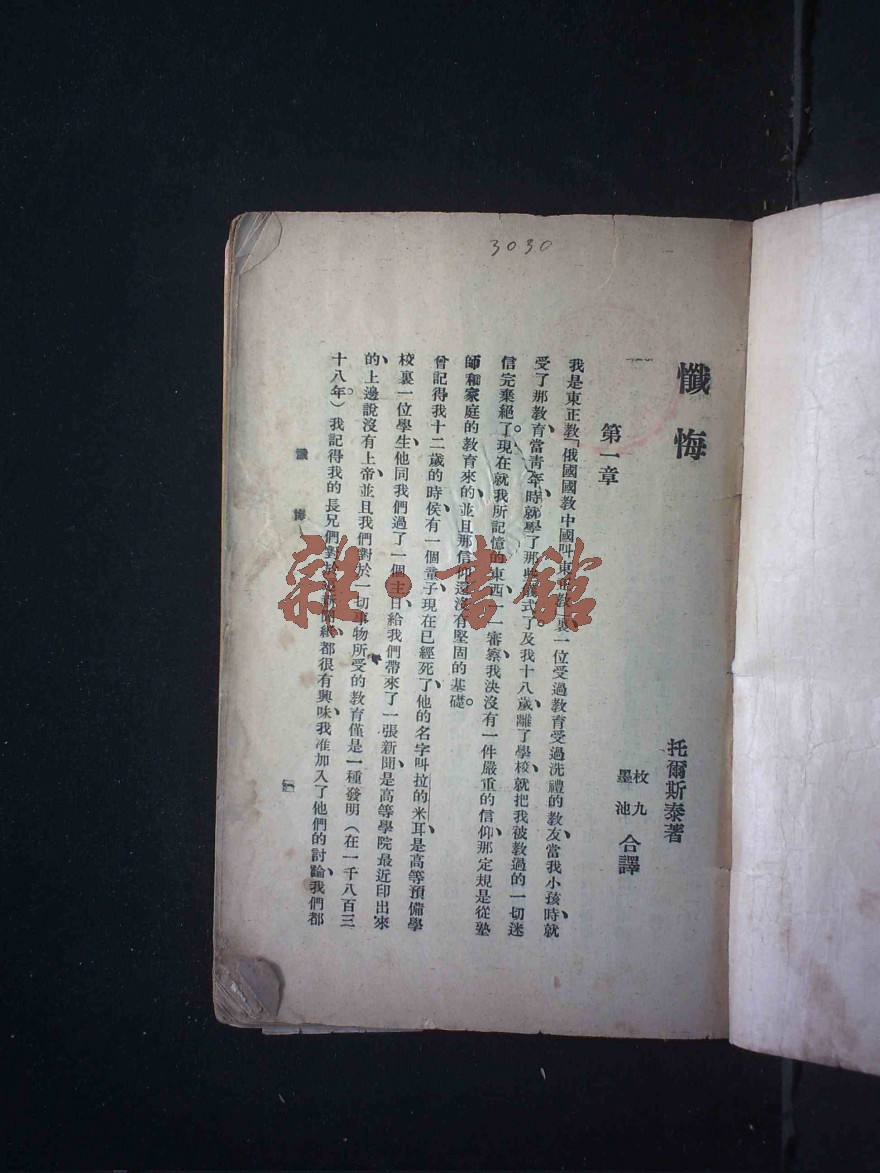 3030
懺悔
托爾斯泰著
枚九
墨池
合譯
第一章
我是東正教「俄國國教中國叫東正教」裏一位受過教育受過洗禮的教友當我小孩時、就
受了那教育當靑年時就學了那些儀式了。及我十八歲、離了學校、就把我被教過的一切迷
信完棄絕了。現在就我所記憶的東西、一一審察、我決沒有一件嚴重的信仰、那定規是從塾
師和家庭的教育來的、並且那信仰還沒有堅固的基礎。
曾記得我十二歲的時侯、有一個童子、現在已經死了、他的名字叫拉的米耳、是高等預備學
校裏一位學生、他同我們過了一個主日、給我們帶來了一張新聞、是高等學院最近印出來
的、上邊說沒有上帝、並且我們對於一切事物所受的教育僅是一種發明(在一千八百三
十八年)。我記得我的長兄們對於新聞紙、都很有興味、我准加入了他們的討論、我們都
懺悔
一
雜·書館